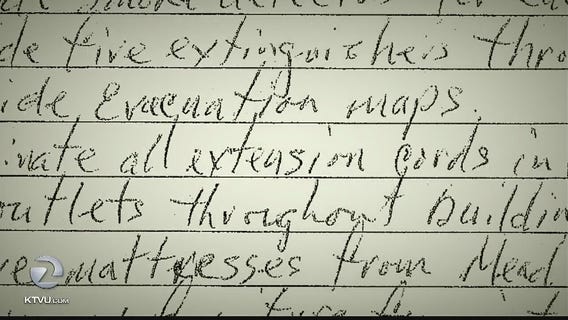 smoke detectors for ea
de fire extinguishers thro
ide Evacuation maps.
inate all extension cords in
outlets throughout buildin
ve mattresses from Mead
2
KTVU.COM